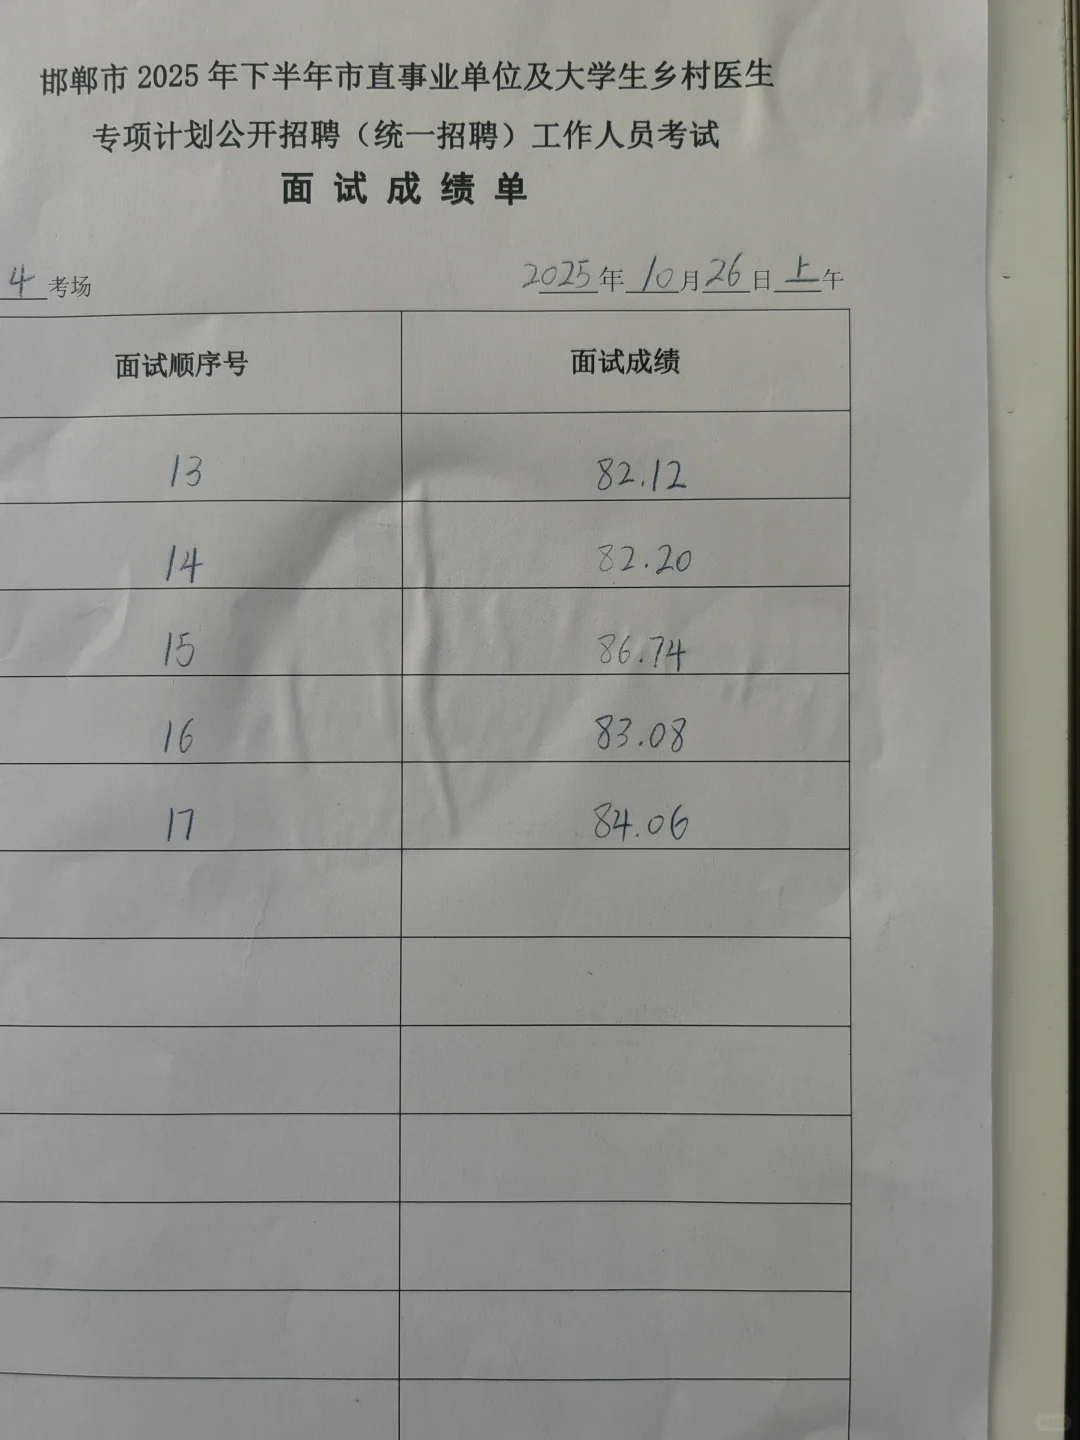 邯郸市 2025 年下半年市直事业单位及大学生乡村医生
专项计划公开招聘（统一招聘）工作人员考试
面试成绩单
4考场 2025年10月26日上午
面试顺序号 面试成绩
13 82.12
14 82.20
15 86.74
16 83.08
17 84.06